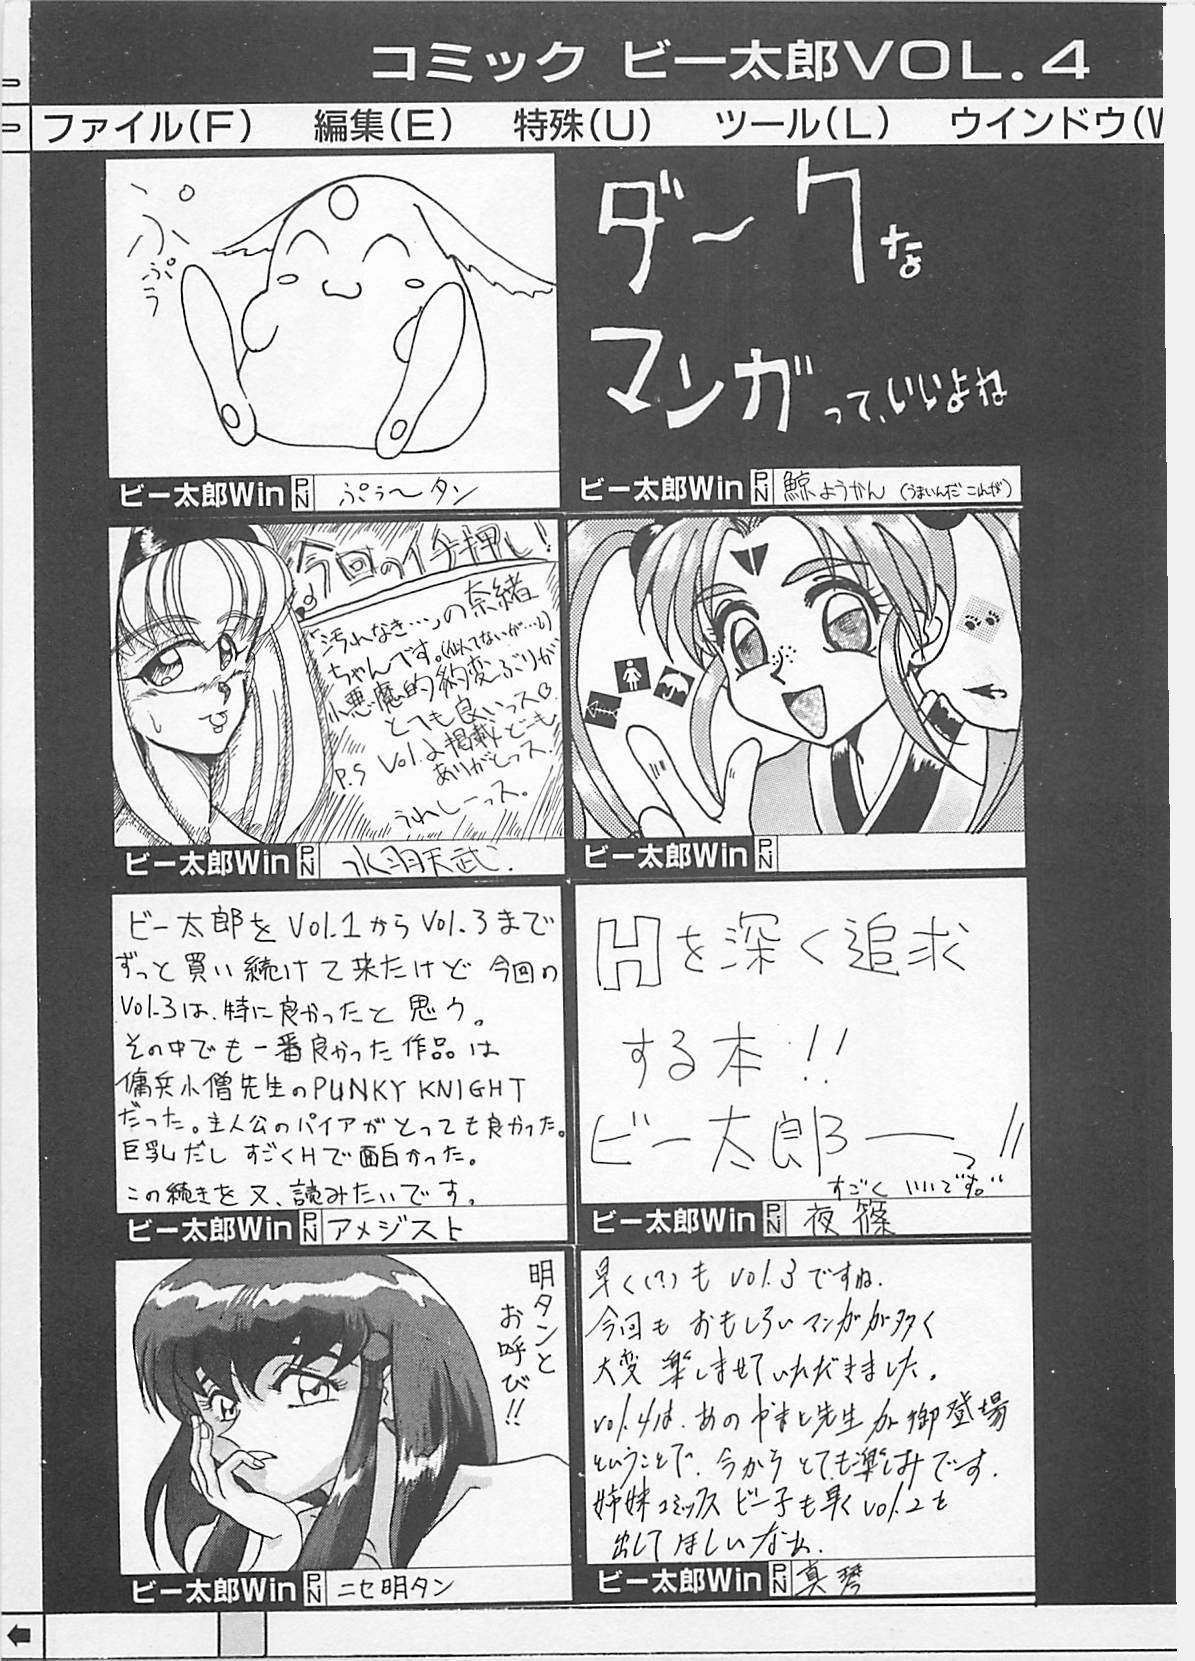 コミック ビー太郎VOL.4
ファイル(F) 編集(E) 特殊(U) ツール(L) ウインドウ(W
ぷ
ぷぅ
ビー太郎Win PN ぷぅ〜タン
ダークな
マンガって、いいよね
ビー太郎Win PN 鯨ようかん (うまいんだこれが)
今回のイチ押し!
「汚れなき…」の奈緒
ちゃんです。(似てないが…)
小悪魔的豹変ぶりが
とても良いっス
P.S Vol.2掲載どーも
ありがとっス。
うれしーっス。
ビー太郎Win PN 水羽天武
ビー太郎Win PN
ビー太郎をVol.1からVol.3まで
ずっと買い続けて来たけど今回の
Vol.3は、特に良かったと思う。
その中でも一番良かった作品は
傭兵小僧先生のPUNKY KNIGHT
だった。主人公のパイアがとっても良かった。
巨乳だしすごくHで面白かった。
この続きを又、読みたいです。
ビー太郎Win PN アメジスト
Hを深く追求
する本!!
ビー太郎ーっ!!
すごくいいです。
ビー太郎Win PN 夜篠
明タンと
お呼び!!
ビー太郎Win PN ニセ明タン
早く(?)もVol.3ですね.
今回もおもしろいマンガが多く
大変楽しませていただきました。
Vol.4は、あのやまと先生が御登場
ということで、今からとても楽しみです.
姉妹コミックスビー子も早くVol.2を
出してほしいなぁ.
ビー太郎Win PN 真琴